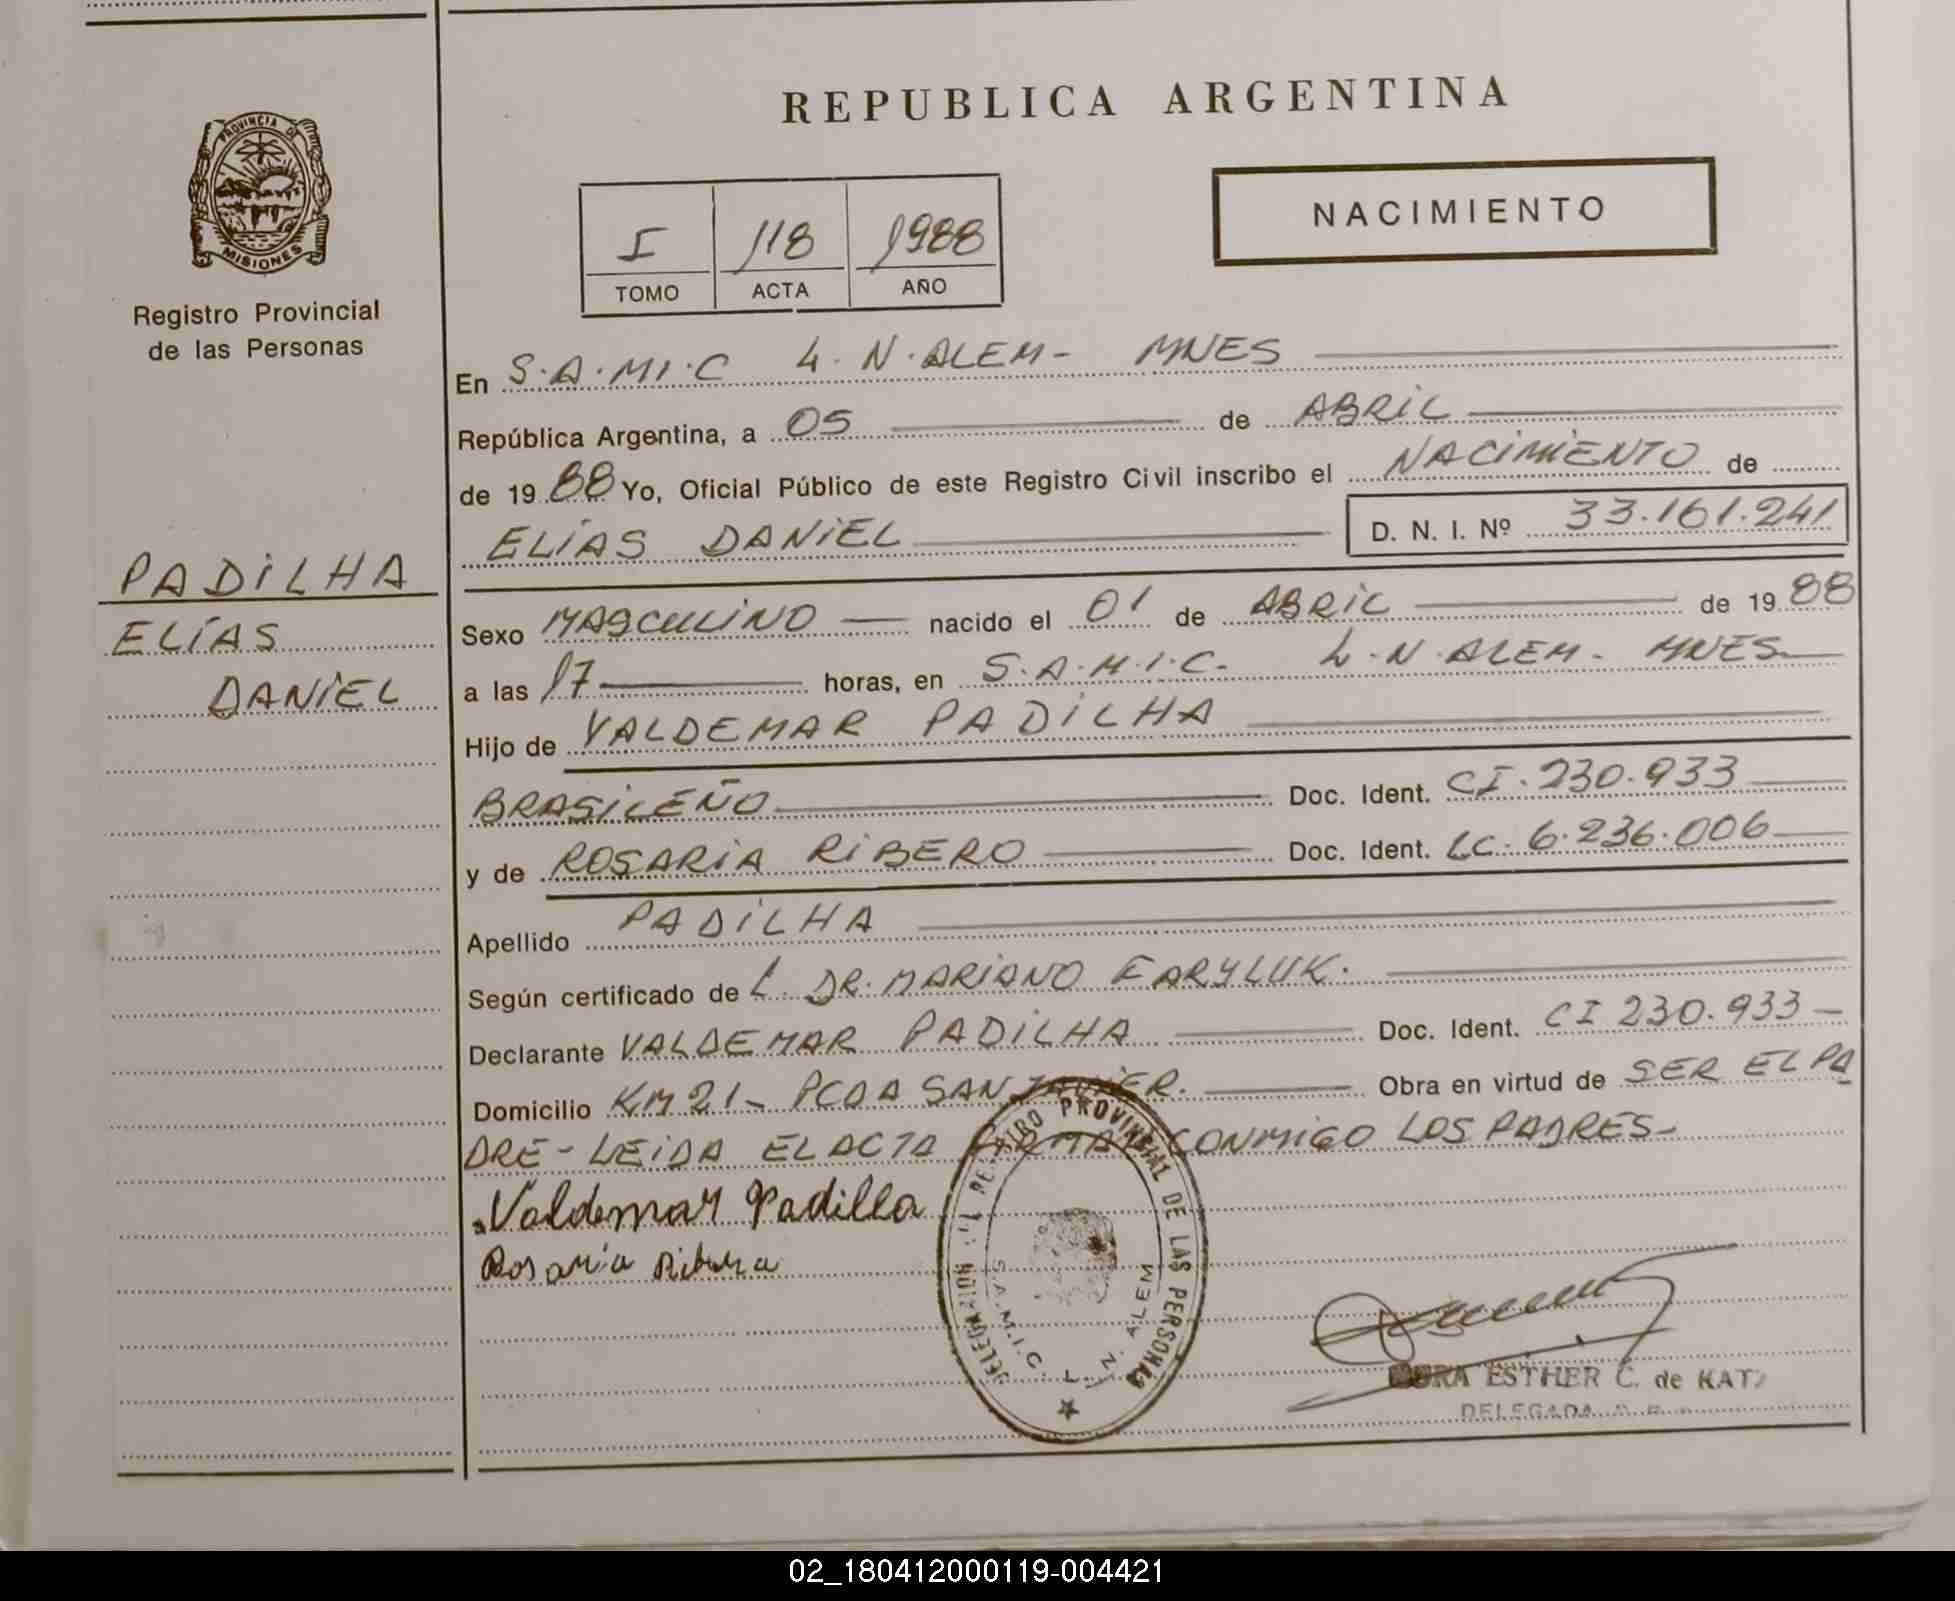 REPUBLICA ARGENTINA
PROVINCIA DE
MISIONES
Registro Provincial
de las Personas
I 118 1988
TOMO ACTA AÑO
NACIMIENTO
PADILHA
ELÍAS
DANIEL
En S.A.M.I.C L.N.ALEM- MNES
República Argentina, a 05 de ABRIL
de 1988 Yo, Oficial Público de este Registro Civil inscribo el NACIMIENTO de
ELÍAS DANIEL D. N. I. Nº 33.161.241
Sexo MASCULINO nacido el 01 de ABRIL de 1988
a las 17 horas, en S.A.M.I.C. L.N.ALEM. MNES
Hijo de VALDEMAR PADILHA
BRASILEÑO Doc. Ident. CI.230.933
y de ROSARIA RIBERO Doc. Ident. LC.6.236.006
Apellido PADILHA
Según certificado de L. DR.MARIANO FARYLUK.
Declarante VALDEMAR PADILHA Doc. Ident. CI 230.933-
Domicilio KM 21- PCDA SAN JAVIER. Obra en virtud de SER EL PA
DRE- LEIDA EL ACTA FIRMAN CONMIGO LOS PADRES-
Valdemar Padilla
Rosaria Ribera
REGISTRO PROVINCIAL DE LAS PERSONAS
DELEGACION
S.A.M.I.C. L. N. ALEM
ESTHER C. de KATZ
DELEGADA
02_180412000119-004421